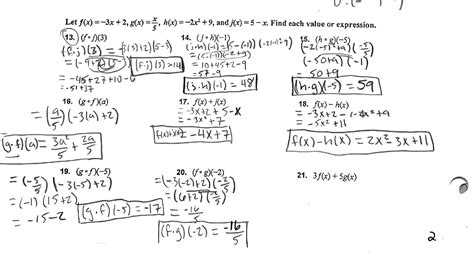 Let f(x) = –3x + 2, g(x) = x/5, h(x) = –2x² + 9, and j(x) = 5 – x. Find each value or expression.
13. (f • j)(3)
(f·j)(3) = (-3(3)+2)(5-3)
(f·j)(3) = 14
= -15+27+10-6
= -51+37
14. (j • h)(-1)
= 10+45+2-9
= 57-9
(j·h)(-1) = 48
15. (h • g)(-5)
(-2(-5)²+9)(-5/5)
(-50+9)(-1)
= 50+9
(h·g)(-5) = 59
16. (g • f)(a)
= (a/5)(-3(a)+2)
(g·f)(a) = 3a²/5 + 2a/5
17. f(x) + j(x)
= -3x+2+5-x
= -3x+7
f(x)+j(x) = -4x+7
18. f(x) – h(x)
= -3x+2--2x²+9
= -5x²+11
f(x)-h(x) = 2x²-3x+11
19. (g • f)(-5)
= (-5/5)(-3(-5)+2)
= (-1)(15+2)
= -15-2
(g·f)(-5) = -17
20. (f • g)(-2)
= (-3(-2)+2)(-2/5)
= (6+2)(-2/5)
= -16/5
(f·g)(-2) = -16/5
21. 3f(x) + 5g(x)
2